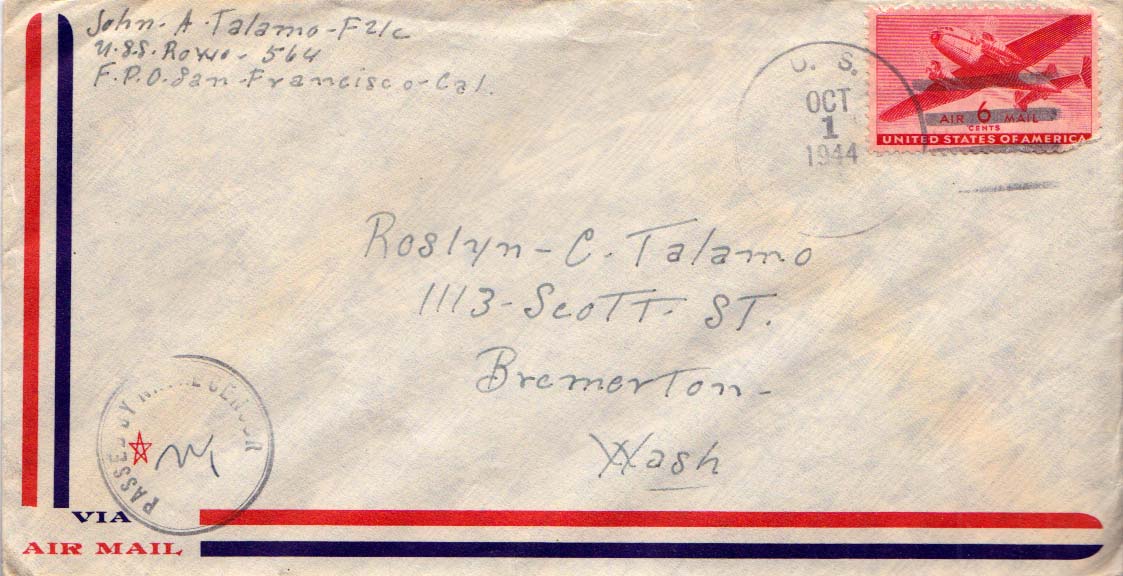 John - A - Talamo - F2/c
U.S.S. Rowe - 564
F.P.O. San - Francisco - Cal.
U. S.
OCT
1
1944
AIR 6 MAIL
CENTS
UNITED STATES OF AMERICA
Roslyn - C. Talamo
1113 - Scott - St.
Bremerton -
Wash
PASSED BY NAVAL CENSOR
VIA
AIR MAIL